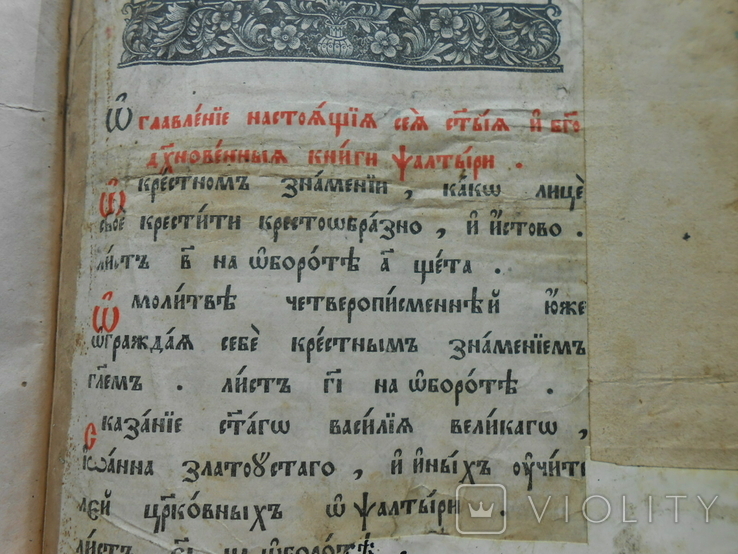 Ѡглавле́нїе настоѧ́щїѧ сеѧ̀ ст҃ы́ѧ и҆ бг҃о
дх҃нове́нныѧ кни́ги ѱалты́ри .
Ѡ крє́стномъ зна́менїи , ка́кѡ лицѐ
своѐ крести́ти крестоѡбра́зно , и҆ и҆́стово .
ли́стъ в҃ на ѡ҆боро́тѣ а҃ ще́та .
Ѡ моли́твѣ четверопи́сменнѣй ю҆́же
ѡ҆гражда́ѧ себѐ кре́стнымъ зна́менїемъ
гл҃ем . ли́стъ г҃і на ѡ҆боро́тѣ .
Сказа́нїе ст҃а́гѡ васи́лїѧ вели́кагѡ ,
їѡа́нна златоꙋ́стаго , и҆ и҆ны́хъ ᲂу҆чи́те
лей цр҃ко́вныхъ ѡ҆ ѱалты́ри .
ли́стъ є҃і на ѡ҆боро́тѣ .
VIOLITY